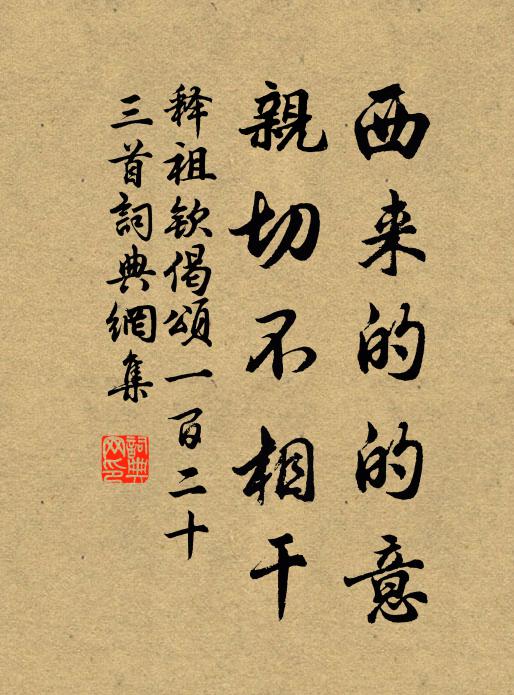 西来的的意
親切不相干
释祖欽偈頌一百二十
三首詞典網集
詞典網印